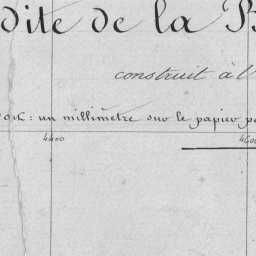 dite de la B
construit à l'
: un millimètre sur le papier po
4400